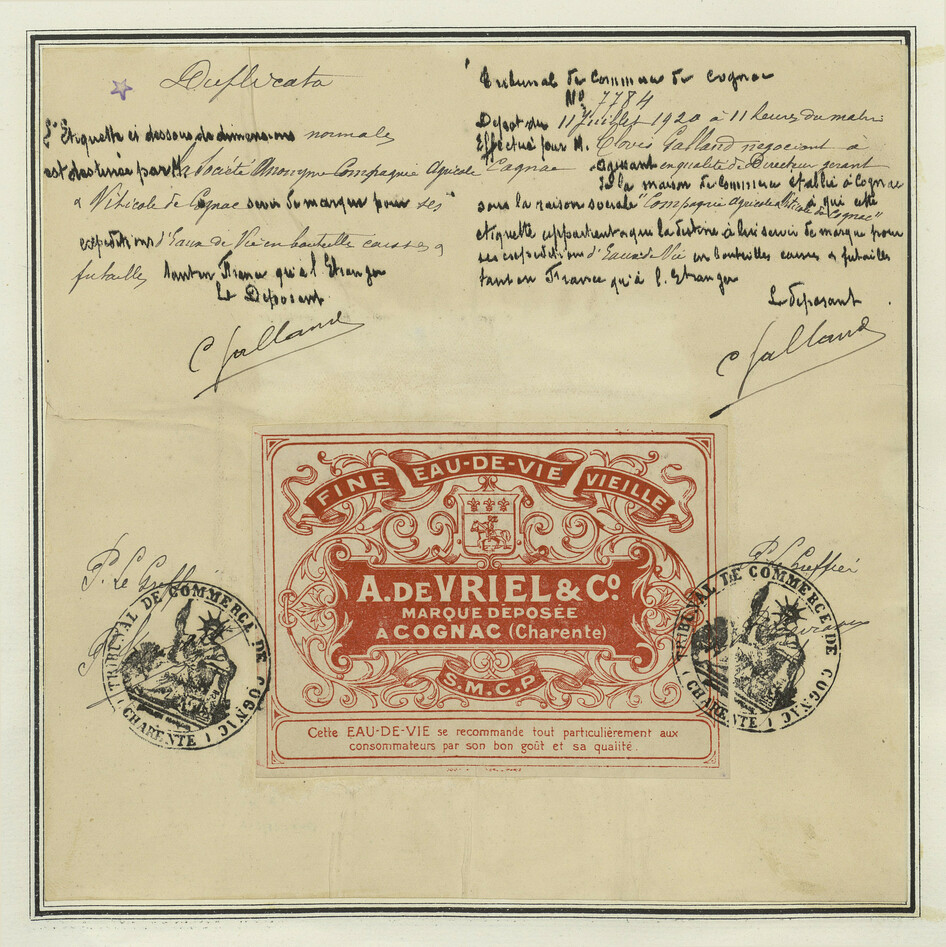 Duplicata
L'Etiquette ci dessous de dimensions normales
est destinée par M. la Société Anonyme Compagnie Agricole
& Viticole de Cognac servir de marque pour ses
expéditions d'Eaux de Vie en bouteilles caisses &
futailles tant en France qu'à l'Etranger
Le Deposant
C Galland
Tribunal de Commerce de Cognac
No 7784
Depot du 11 Juillet 1920 à 11 heures du matin
Effectué par M. Clovis Galland negociant à
Cognac agissant en qualité de Directeur gerant
de la maison de Commerce etablie à Cognac
sous la raison sociale "Compagnie Agricole & Viticole de Cognac" à qui cette
etiquette appartient & qui la destine à lui servir de marque pour
ses expeditions d'Eaux de Vie en bouteilles caisses & futailles
tant en France qu'à l'Etranger
Le deposant
C Galland
FINE EAU-DE-VIE VIEILLE
A. DE VRIEL & Co.
MARQUE DEPOSÉE
A COGNAC (Charente)
S.M.C.P
Cette EAU-DE-VIE se recommande tout particulièrement aux
consommateurs par son bon goût et sa qualité.
P. Le Greffier
TRIBUNAL DE COMMERCE DE COGNAC
(CHARENTE)
P. Le Greffier
TRIBUNAL DE COMMERCE DE COGNAC
(CHARENTE)